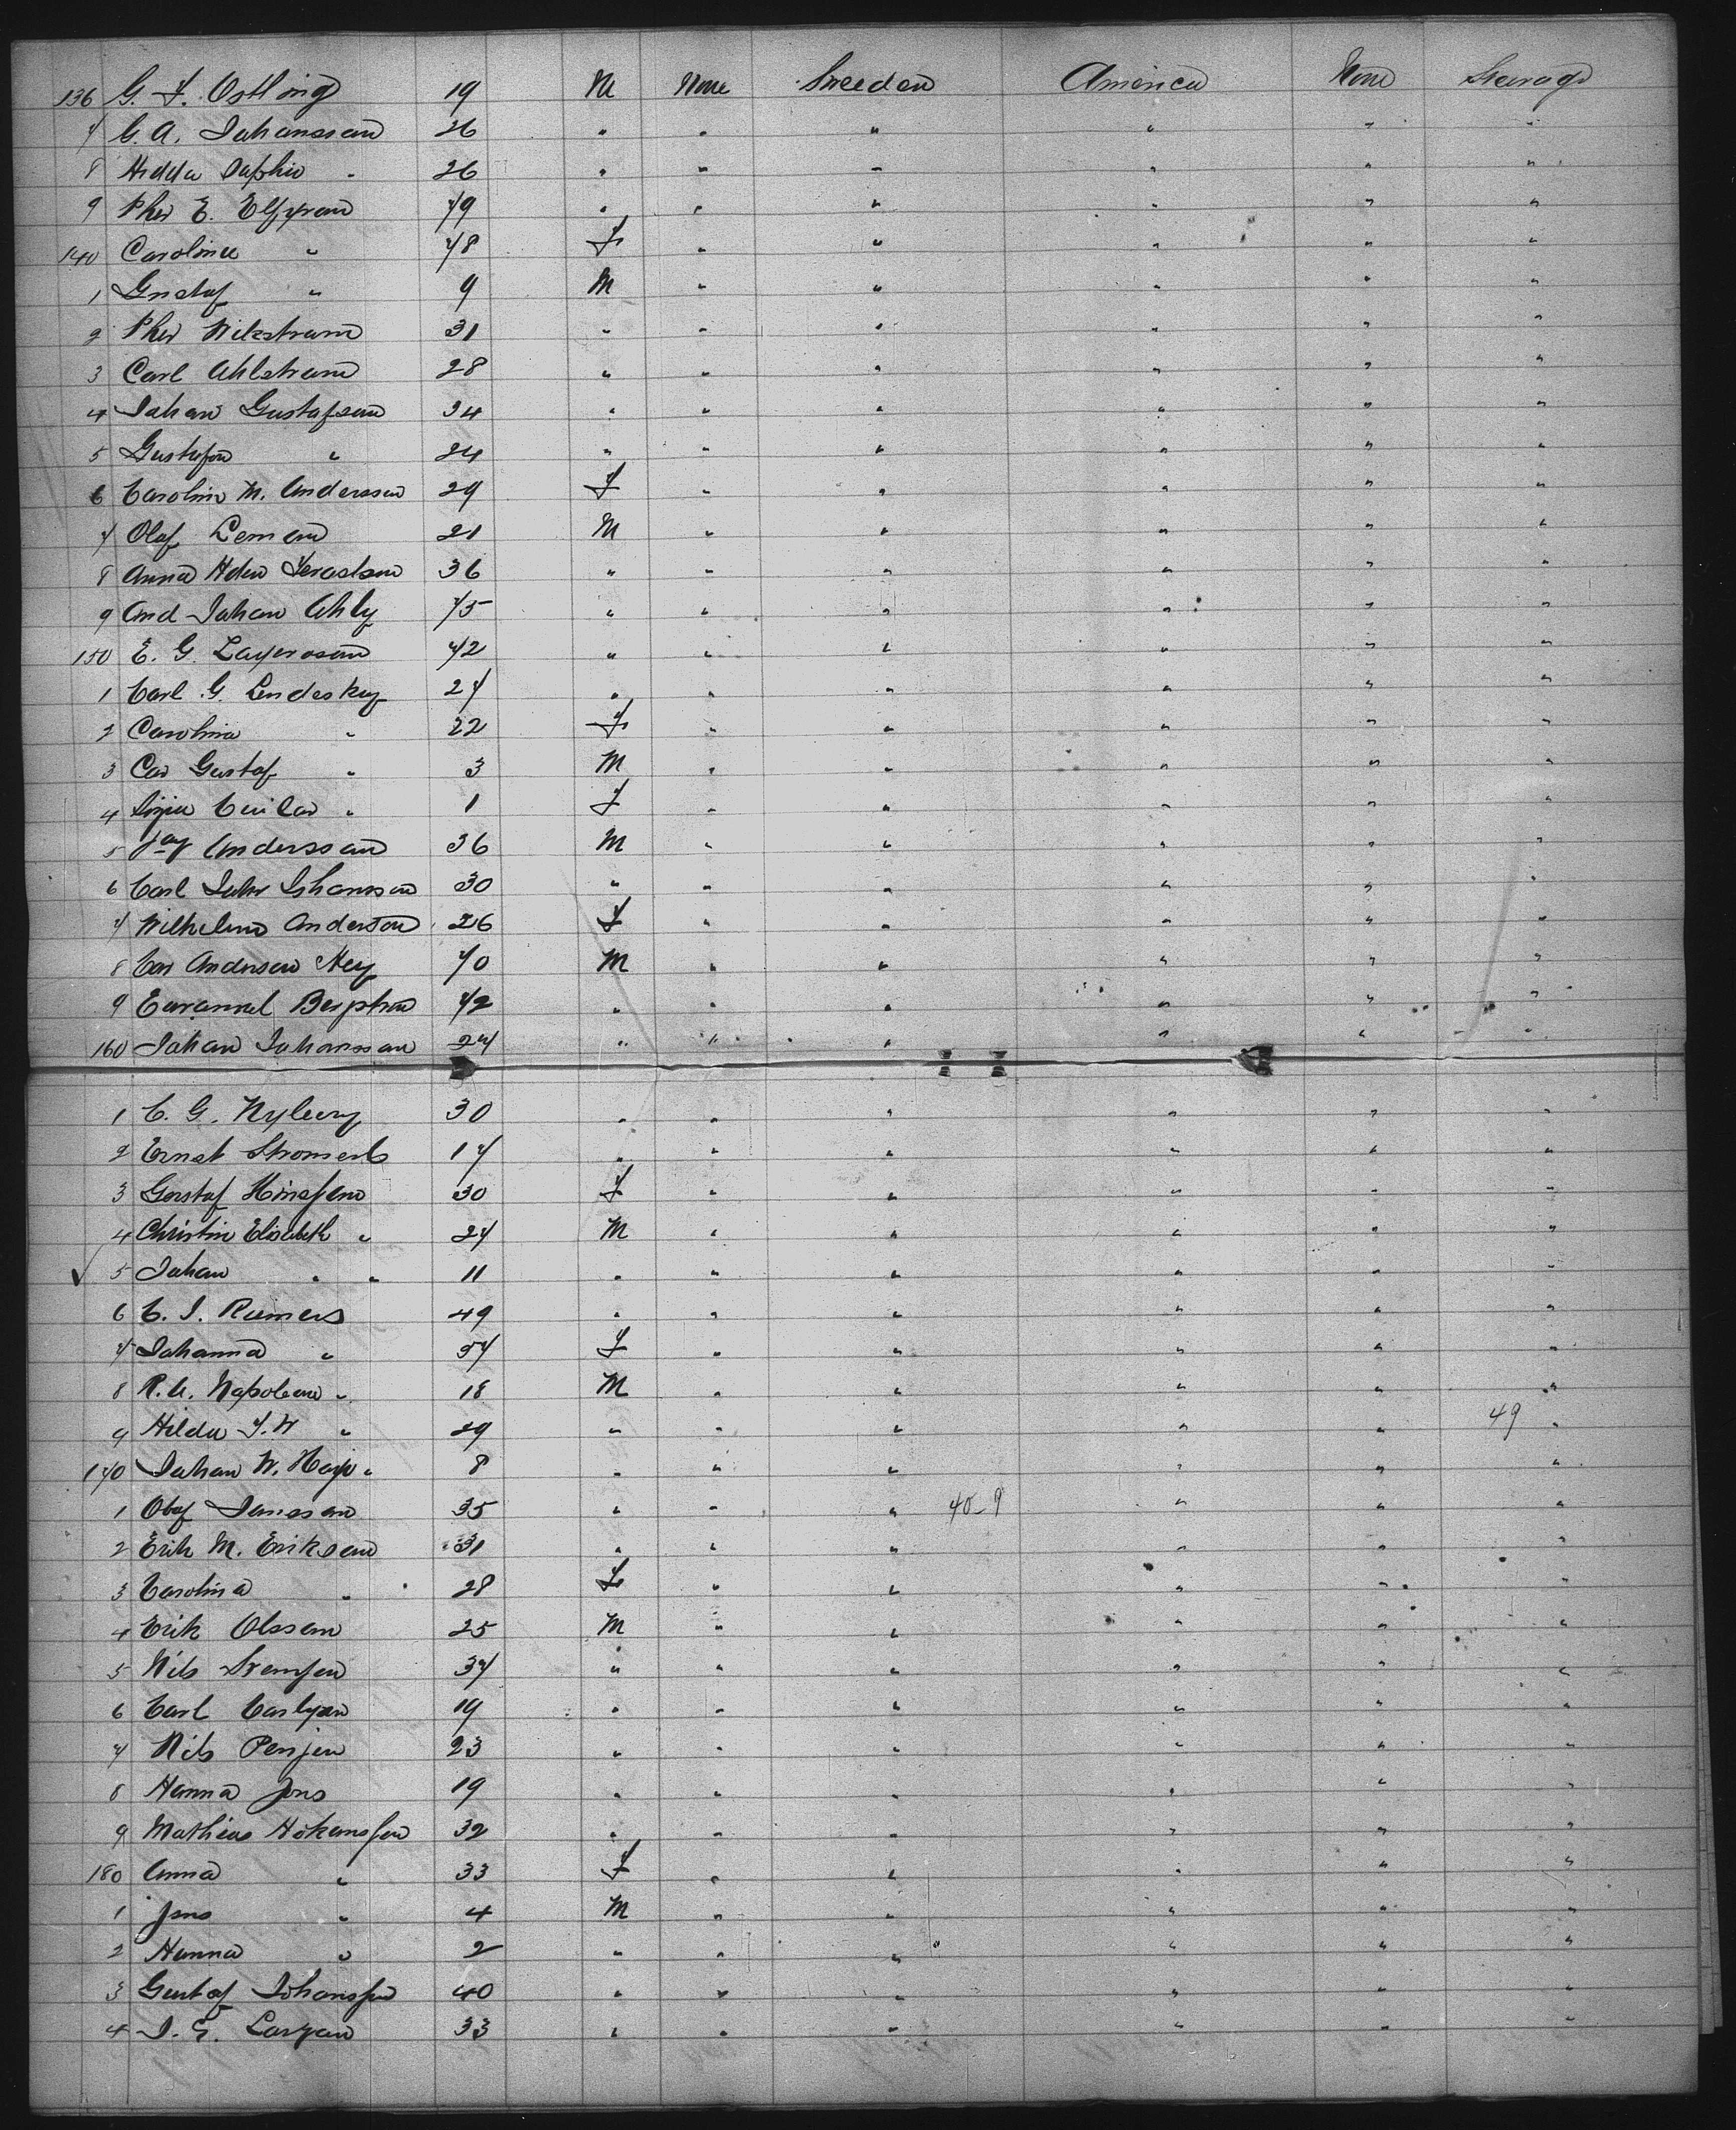 136 G. F. Ostling 19 M None Sweeden America None Steerage
7 C. A. Johansson 26 " " " " " "
8 Hedda Sophia " 26 " " " " " "
9 49 " " " " " "
140 Carolina " 48 F " " " " "
1 Gustaf " 9 M " " " " "
2 Wikstrom 31 " " " " " "
3 Carl Ahlstrom 28 " " " " " "
4 Johan Gustafson 34 " " " " " "
5 Gustafva " 24 " " " " " "
6 Carolin M. Andersson 29 F " " " " "
7 Olof 21 M " " " " "
8 Anna 36 " " " " " "
9 And Johan Ahly 75 " " " " " "
150 E. G. 42 " " " " " "
1 Carl G. 27 " " " " " "
2 Carolina " 22 F " " " " "
3 Car Gustaf " 3 M " " " " "
4 " 1 F " " " " "
5 Andersson 36 M " " " " "
6 Carl Johansson 30 " " " " " "
7 Wilhelmina Anderson 26 F " " " " "
8 Car Anderson 40 M " " " " "
9 42 " " " " " "
160 Johan Johansson 27 " " " " " "
1 C. G. Nyberg 30 " " " " " "
2 Ernst 17 " " " " " "
3 Gustaf 30 F " " " " "
4 Christin Elisabeth " 27 M " " " " "
5 Johan " " 11 " " " " " "
6 C. J. Reimers 49 " " " " " "
7 Johanna " 57 F " " " " "
8 R. A. Napoleon " 18 M " " " " "
9 Hilda F. W " 29 " " " " " 49 "
170 Johan W. " 8 " " " " " "
1 Olof Jansson 35 " " " 40-9 " " "
2 Erik M. Erikson 31 " " " " " "
3 Carolina " 28 F " " " " "
4 Erik Olsson 25 M " " " " "
5 Nils Svensson 37 " " " " " "
6 Carl Carlson 19 " " " " " "
7 Nils Persson 23 " " " " " "
8 Hanna Jons 19 " " " " " "
9 Mathias Hokansson 32 " " " " " "
180 Anna " 33 F " " " " "
1 Jons " 4 M " " " " "
2 Hanna " 2 " " " " " "
3 Gustaf Johansson 40 " " " " " "
4 J. E. Larson 33 " " " " " "